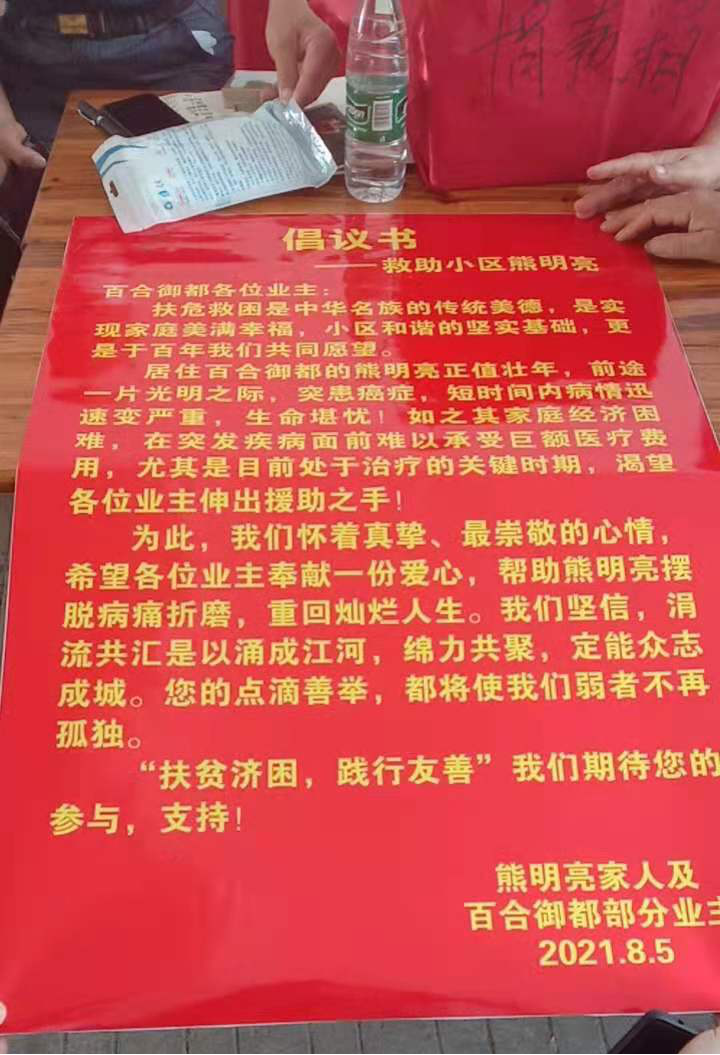 捐款箱
倡议书
——救助小区熊明亮
百合御都各位业主：
扶危救困是中华名族的传统美德，是实
现家庭美满幸福，小区和谐的坚实基础，更
是于百年我们共同愿望。
居住百合御都的熊明亮正值壮年，前途
一片光明之际，突患癌症，短时间内病情迅
速变严重，生命堪忧！如之其家庭经济困
难，在突发疾病面前难以承受巨额医疗费
用，尤其是目前处于治疗的关键时期，渴望
各位业主伸出援助之手！
为此，我们怀着真挚、最崇敬的心情，
希望各位业主奉献一份爱心，帮助熊明亮摆
脱病痛折磨，重回灿烂人生。我们坚信，涓
流共汇是以涌成江河，绵力共聚，定能众志
成城。您的点滴善举，都将使我们弱者不再
孤独。
“扶贫济困，践行友善”我们期待您的
参与，支持！
熊明亮家人及
百合御都部分业主
2021.8.5